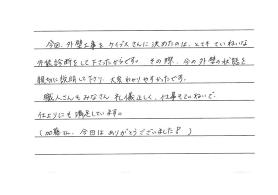 今回、外壁工事を ケイプスさんに決めたのは、とても ていねいな
外装診断をして下さったからです。 その際、今の外壁の状態を
親切に説明して下さり、大変わかりやすかったです。
職人さんもみなさん 礼儀正しく、仕事もていねいで、
仕上りにも満足しています。
(加藤さん、今日は ありがとうございました!)